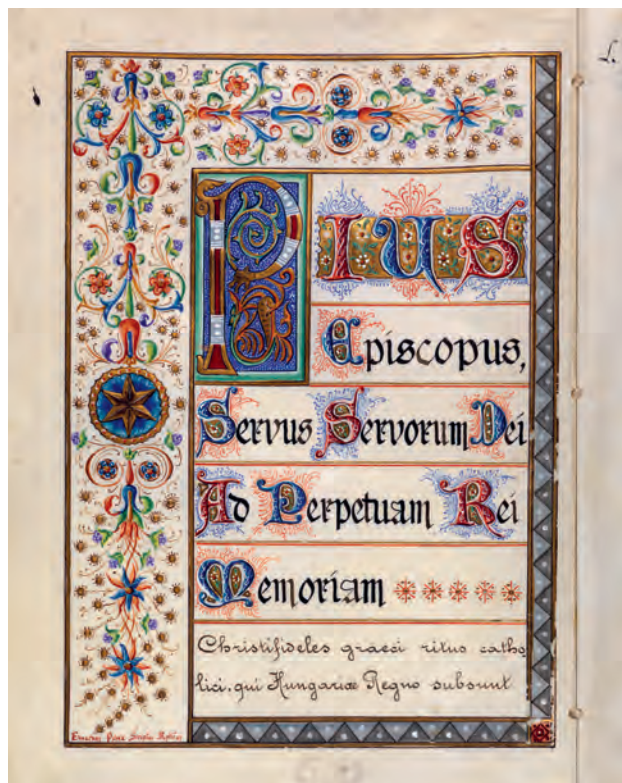 PIUS
Episcopus,
Servus Servorum Dei
Ad Perpetuam Rei
Memoriam
Christifideles graeci ritus catho
lici, qui Hungariae Regno subsunt